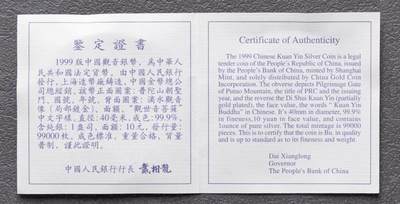 鑒定證書
1999版中國觀音銀幣，為中華人
民共和國法定貨幣，由中國人民銀行
發行，上海造幣廠鑄造，中國金幣總公
司總經銷。該幣正面圖案：普陀山朝聖
門、國號、年號，背面圖案：滴水觀音
像（局部鍍金）、面額、"觀世音菩薩"
中文字樣，直徑：40毫米，成色：99.9%，
含純銀：1盎司，面額：10元，發行量：
99000枚，成色標準，重量合格，質量
普制，謹此證明。
中國人民銀行行長 戴相龍
Certificate of Authenticity
The 1999 Chinese Kuan Yin Silver Coin is a legal
tender coin of the People's Republic of China, issued
by the People's Bank of China, minted by Shanghai
Mint, and solely distributed by China Gold Coin
Incorporation. The obverse depicts Pilgrimage Gate
of Putuo Mountain, the title of PRC and the issuing
year, and the reverse the Di Shui Kuan Yin (partially
gold plated), the face value, the words " Kuan Yin
Buddha" in Chinese. It's 40mm in diameter, 99.9%
in fineness,10 yuan in face value, and contains
1ounce of pure silver. The total mintage is 99000
pieces. This is to certify that the coin is Bu. in quality
and is up to standard as to its fineness and weight.
Dai Xianglong
Governor
The People's Bank of China